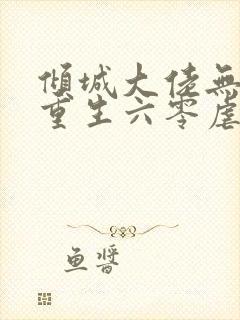 傾城大佬無
重生六零虐
鱼醬